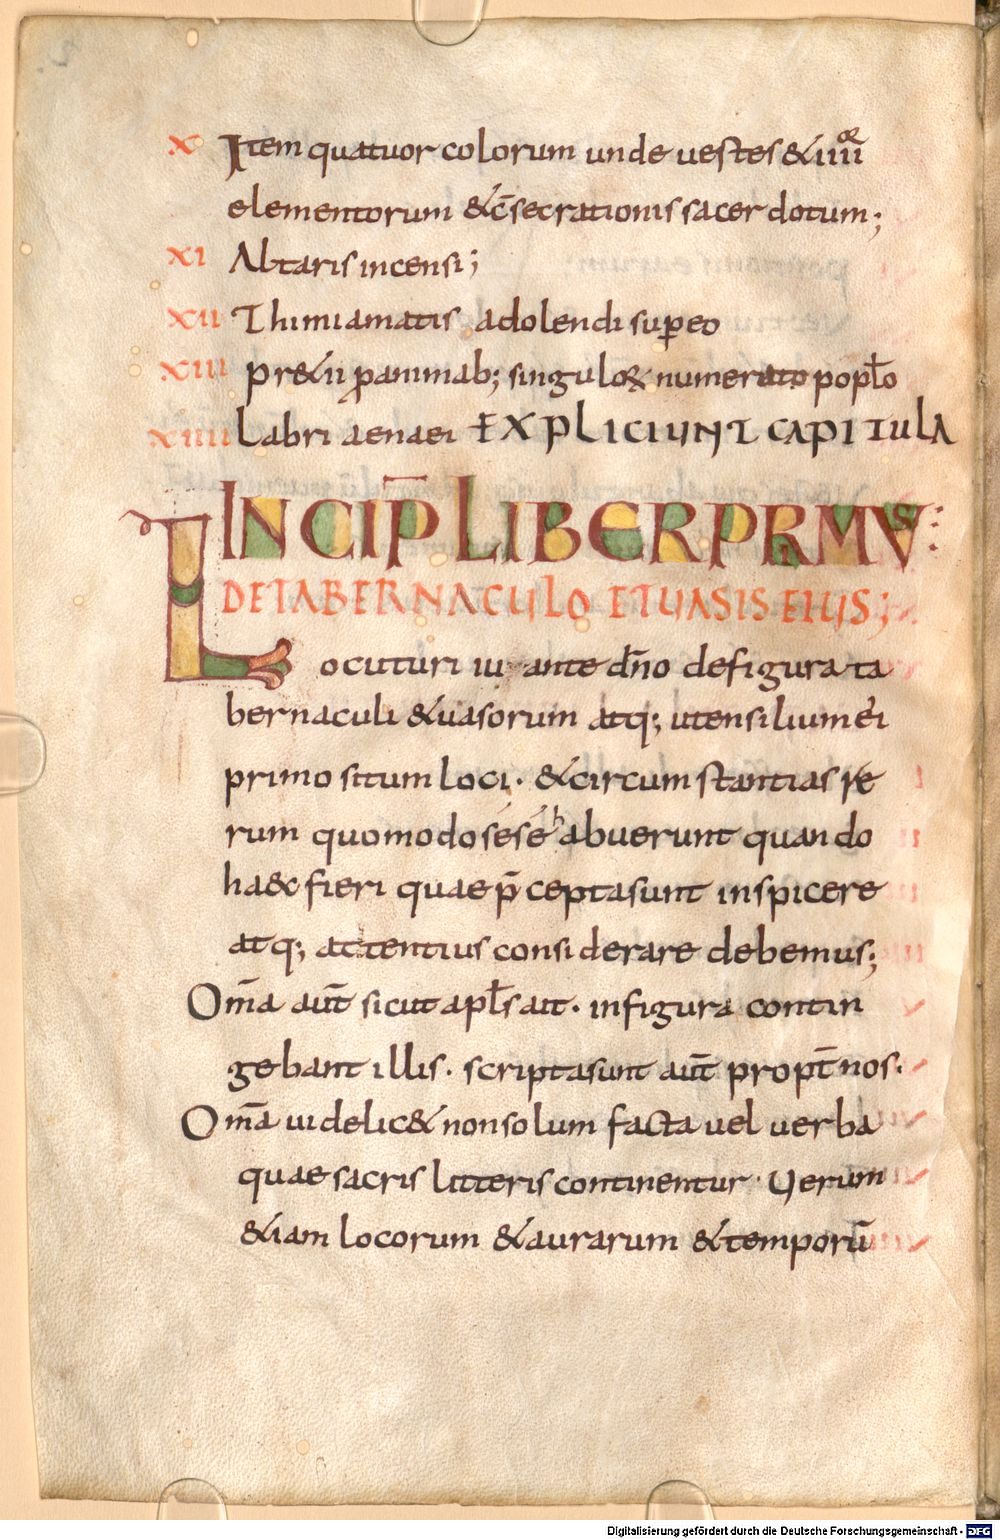 x Item quatuor colorum unde uestes & iiii or
elementorum & c̄secrationis sacerdotum;
xi Altaris incensi;
xii Thimiamatis adolendi sup̱ eo
xiii prætii p̱ animab; singuloꝝ numerato popl̄o
xiiii Labri aenaei EXPLICIUNT CAPITULA
INCIP̄ LIBER PRMUS:
DE TABERNACULO ET UASIS EIUS;
Locuturi iuuante dn̄o de figura ta
bernaculi & uasorum atq; utensilium ei
primo situm loci. & circumstantias re
rum quomodo sese habuerunt quando
haec fieri quae p̄cepta sunt inspicere
atq; attentius considerare debemus;
Om̄a aut̄ sicut apl̄s ait. in figura contin
gebant illis. scripta sunt aut̄ propt̄ nos.
Om̄a uidelic& non solum facta uel uerba
quae sacris litteris continentur. Uerum
&iam locorum & aurarum & temporū
Digitalisierung gefördert durch die Deutsche Forschungsgemeinschaft - DFG